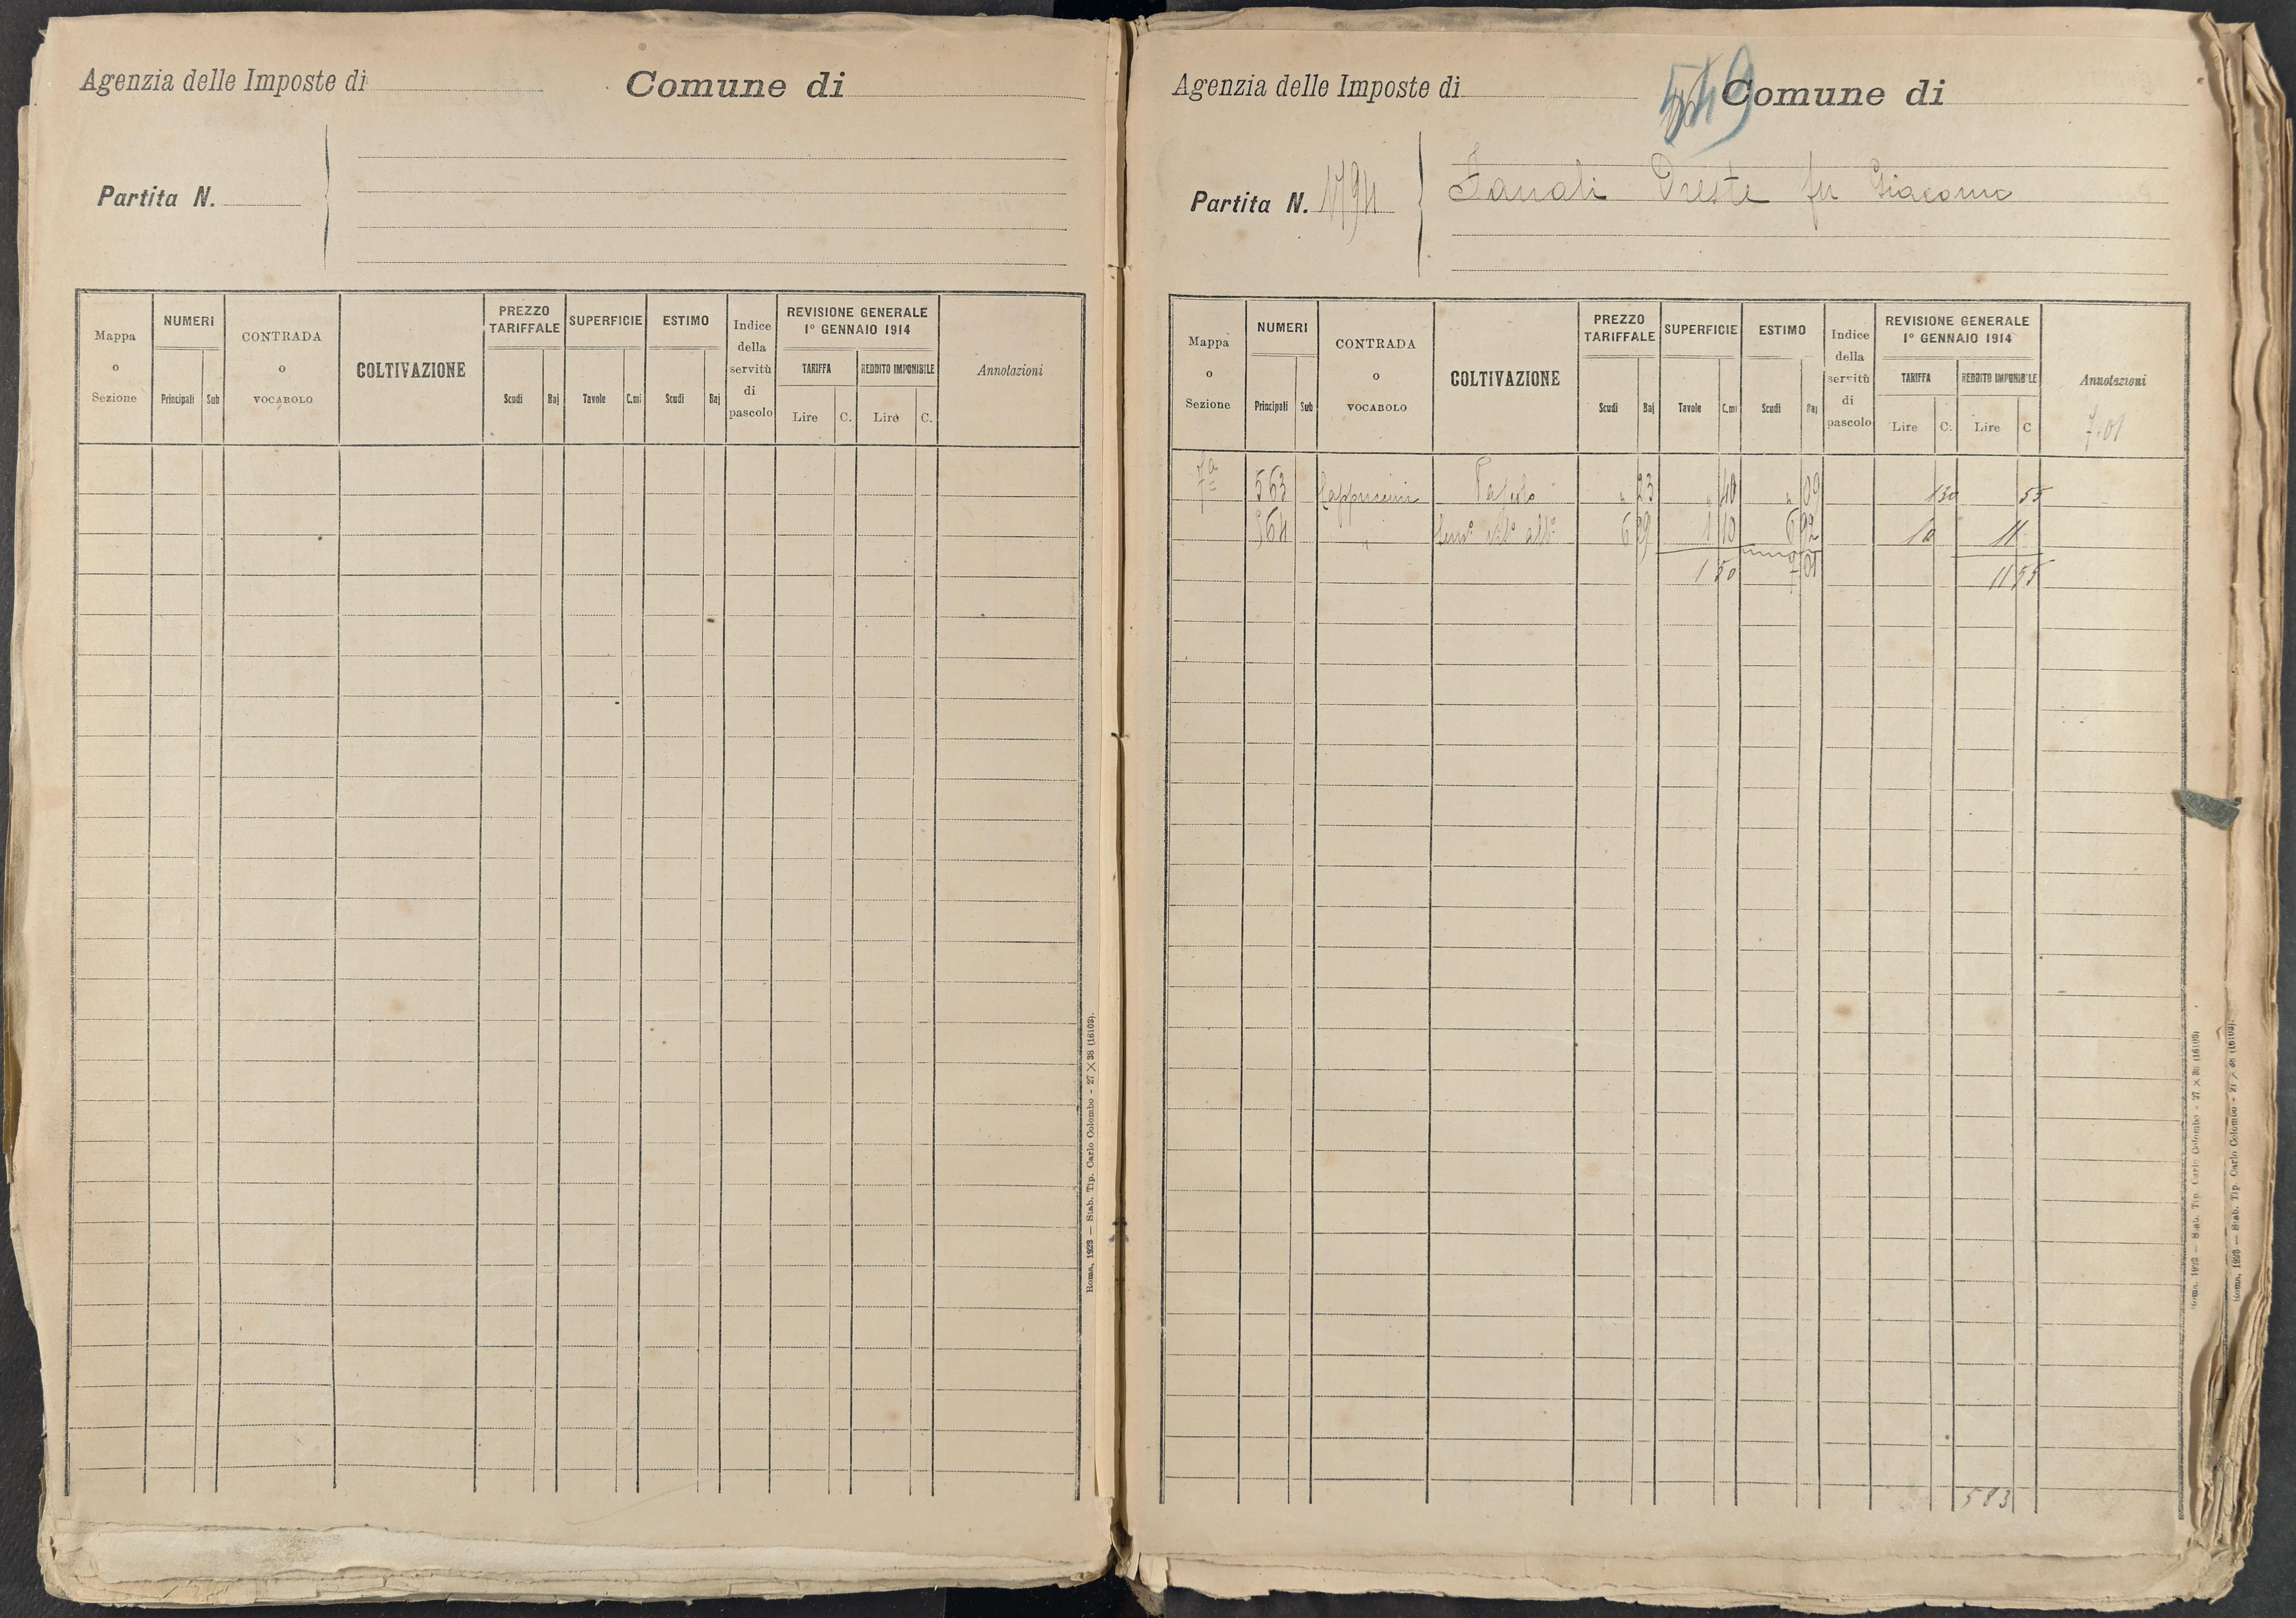 Agenzia delle Imposte di
Comune di
Partita N.
Mappa o Sezione
NUMERI
Principali Sub
CONTRADA o VOCABOLO
COLTIVAZIONE
PREZZO TARIFFALE
Scudi Baj
SUPERFICIE
Tavole C.mi
ESTIMO
Scudi Baj
Indice della servitù di pascolo
REVISIONE GENERALE
1° GENNAIO 1914
TARIFFA
Lire C.
REDDITO IMPONIBILE
Lire C.
Annotazioni
Roma, 1923 — Stab. Tip. Carlo Colombo - 27 × 38 (16103).
Agenzia delle Imposte di
549
Comune di
Partita N. 1794
Oreste fu Giacomo
Mappa o Sezione
NUMERI
Principali Sub
CONTRADA o VOCABOLO
COLTIVAZIONE
PREZZO TARIFFALE
Scudi Baj
SUPERFICIE
Tavole C.mi
ESTIMO
Scudi Baj
Indice della servitù di pascolo
REVISIONE GENERALE
1° GENNAIO 1914
TARIFFA
Lire C.
REDDITO IMPONIBILE
Lire C
Annotazioni
7.01
7a 563 Cappuccini Pascolo " 23 " 40 " 09 130 55
564 " Sem° vit° alb° 6 29 1 10 6 92 10 11
1 50 7 01 11 55
583
Roma, 1923 — Stab. Tip. Carlo Colombo - 27 × 38 (16103)
Roma, 1923 — Stab. Tip. Carlo Colombo - 27 × 38 (16103).